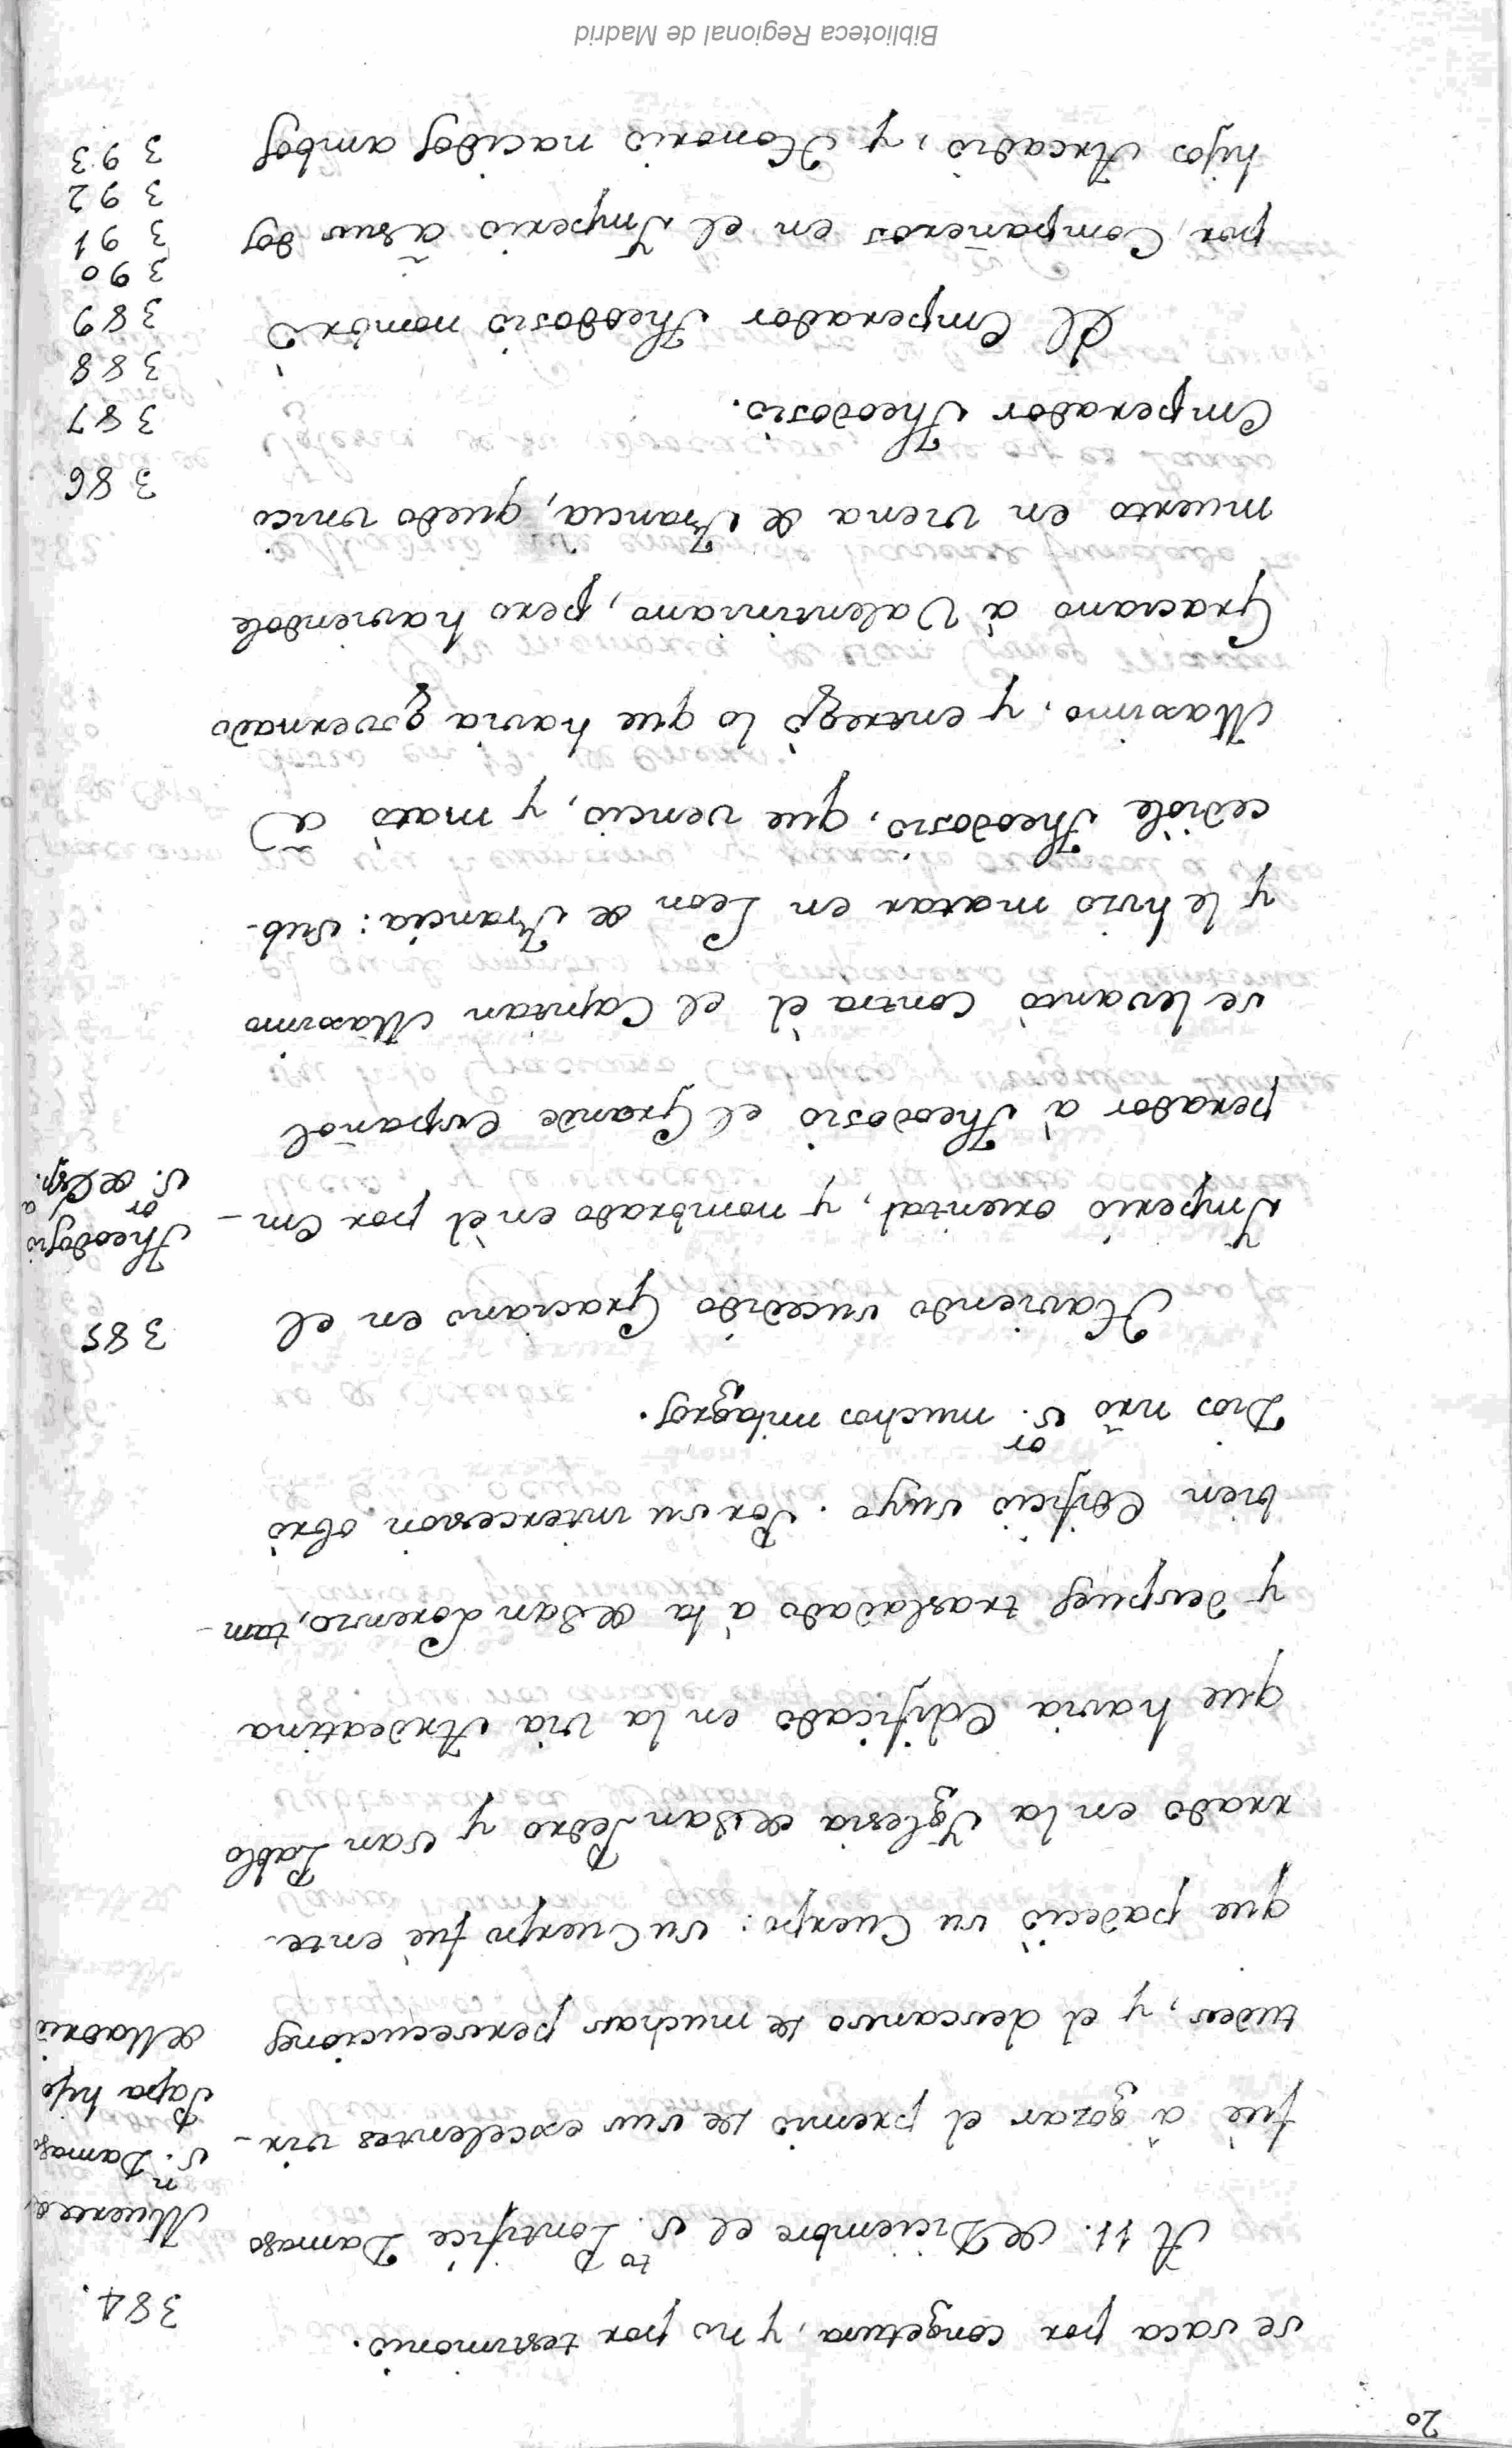 20
se saca por congetura, y no por testimonio.
384.
A 11. de Diciembre el S.to Pontifice Damaso
Muerte de
S.n Damaso
Papa hijo
de Madrid
fuè à gozar el premio de sus excelentes vir-
tudes, y el descanso de muchas persecuciones
que padeciò su Cuerpo: su Cuerpo fuè ente-
rrado en la Yglesia de San Pedro y San Pablo
que havia edificado en la via Ardeatina
y despues trasladado à la de San Lorenzo, tam-
bien Edificio suyo. Por su intercesion obrò
Dios nrõ S.or muchos milagros.
385
Haviendo sucedido Graciano en el
Theodosio
S.or de Esp.a
Imperio oriental, y nombrado en èl por Em-
perador à Theodosio el Grande Español
se levantò contra èl el Capitan Maximo
y le hizo matar en Leon de Francia: Sub-
cediole Theodosio, que venciò, y matò a
Maximo, y entregò lo que havia governado
Graciano à Valentiniano, pero haviendole
muerto en Viena de Francia, quedo unico
Emperador Theodosio.
386
387
388
389
390
391
392
393
El Emperador Theodosio nombrò
por Compañeros en el Imperio a sus dos
hijos Arcadio, y Honorio nacidos ambos
Biblioteca Regional de Madrid